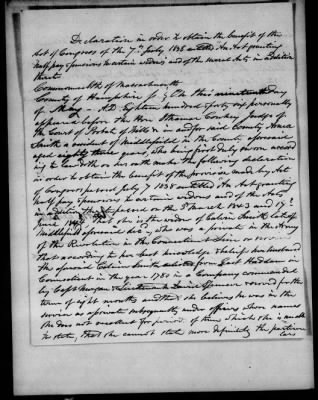 Declaration in order to obtain the benefit of the
Act of Congress of the 7th July 1838 entitled An Act granting
half pay & pensions to certain widows and of the several Acts in addition
thereto
Commonwealth of Massachusetts
County of Hampshire On this nineteenth day
of May A.D. Eighteen hundred & forty six personally
appeared before the Hon. Conkey Judge of
the Court of Probate of Wills &c in and for said County Anna
Smith a resident of Middlefield in the County aforesaid
aged eighty three years, who being first duly sworn accord
ing to law doth on her oath make the following declaration
in order to obtain the benefit of the provision made by Act
of Congress passed July 7 1838 entitled An Act granting
half pay & pensions to certain widows and of the Acts
in addition thereto passed on the 3d March 1843 and 17th
June 1844 That she is the widow of Calvin Smith late of
Middlefield aforesaid dec'd, who was a private in the Army
of the Revolution in the Connecticut line or service
That according to her best knowledge & belief her husband
the aforesaid Calvin Smith enlisted from East Haddam in
Connecticut in the year 1780 in a Company commanded
by Capt & Lieutenant Daniel Spencer & served for the
term of eight months and that she believes he was in the
service as aforesaid subsequently under officers whose names
she does not recollect for periods of time which she is unable
to state, that she cannot state more definitely the particu
lars